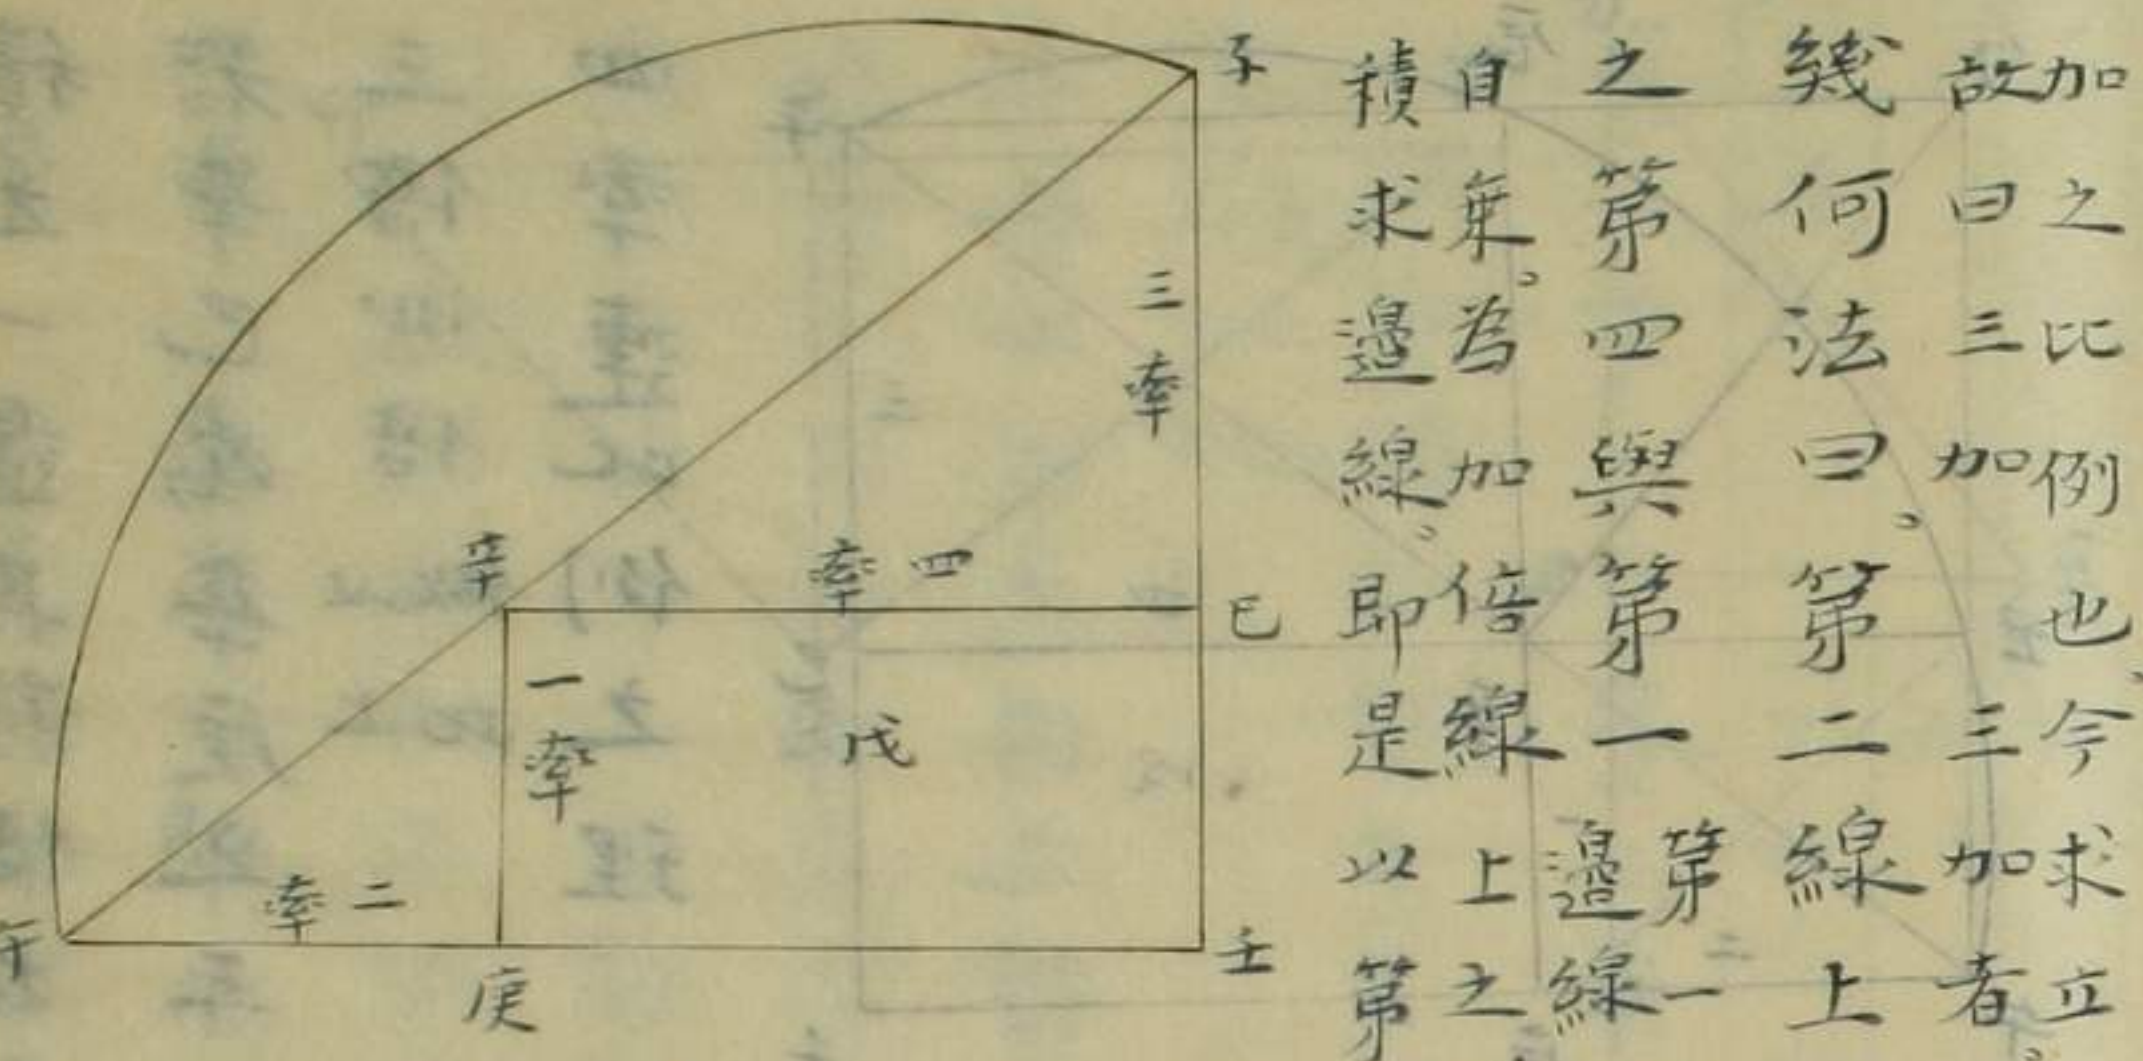 加之比例也、今求立
故曰三加三加者。
幾何法曰。第二線上
之第四與第一第一邊線
自乘。為加倍線上之
積求邊線。即是以第
子
三率
己
四率
辛
一率
戊
壬
二率
庚